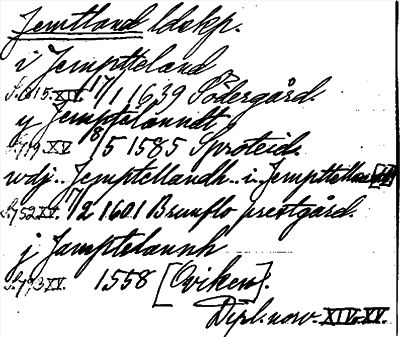 Jemtland ldskp.
i Jemptteland
S. 815. XIV. 17/1 1639 Södergård.
y Jemptelanndt
S. 719 XV 8/5 1585 Sproteid.
wdj. Jemptellandh. i. Jempttella
S. 752 XV. 17/2 1601 Brunflo prestgård.
j Jamptelannh
S. 793 XV. 1558 [Oviken].
Dipl. norv. XIV. XV.